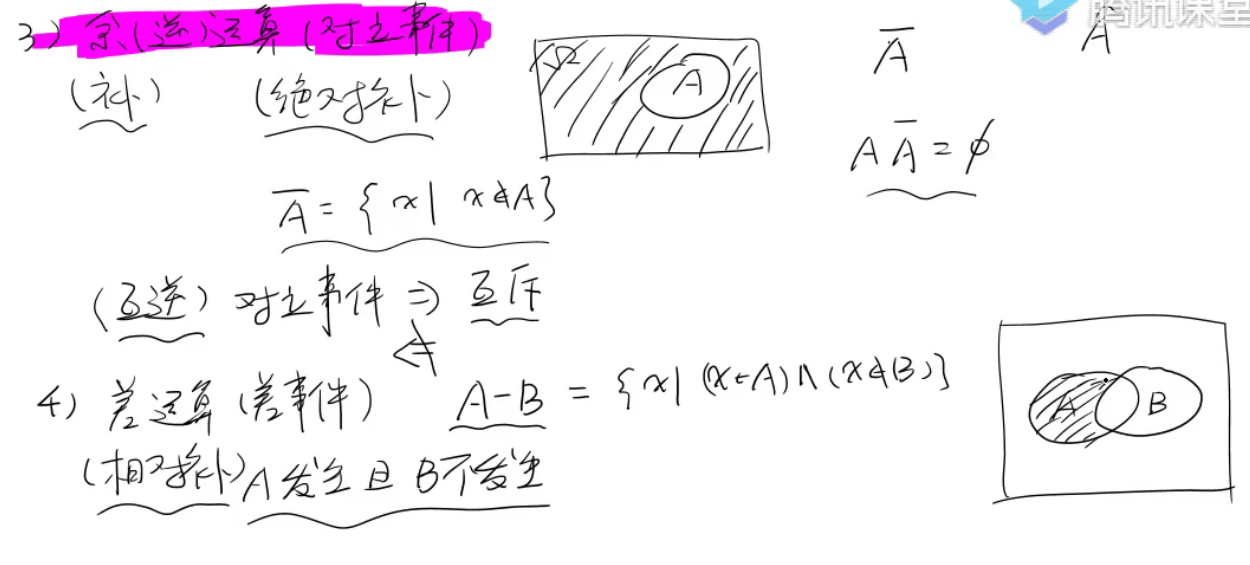 3) 余(逆)运算(对立事件)
(补) (绝对补)
Ω A
Ā A
AĀ = ϕ
Ā = {x| x∉A}
(互逆) 对立事件 ⇒ 互斥
⇍
4) 差运算(差事件) A-B = {x| (x∈A)∧(x∉B)}
(相对补) A发生且B不发生
A B
腾讯课堂